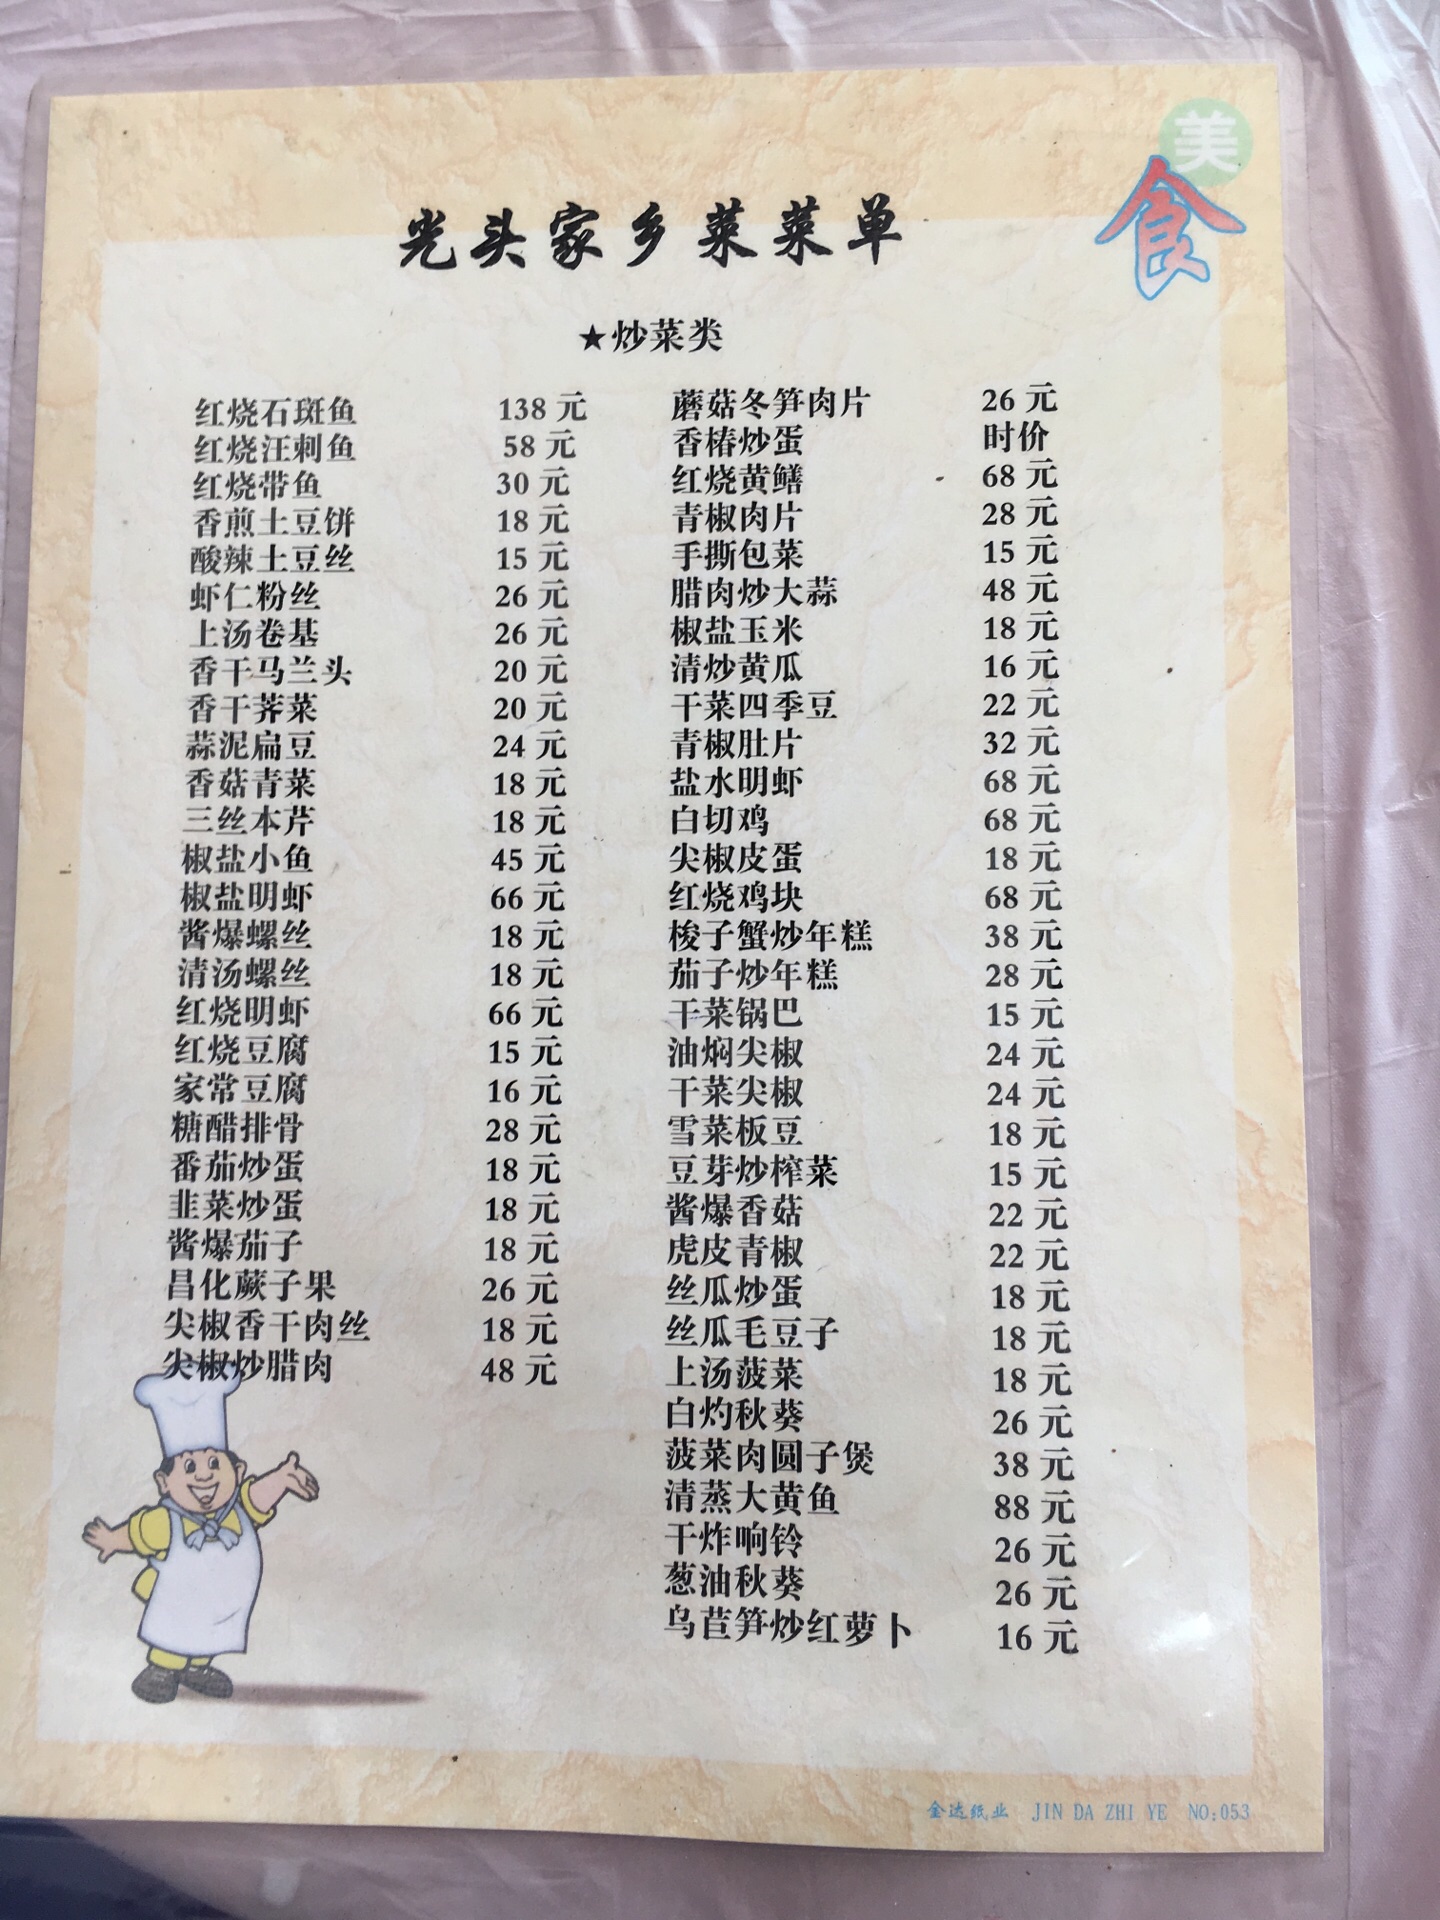 美
食
光头家乡菜菜单
★炒菜类
红烧石斑鱼 138元
红烧汪刺鱼 58元
红烧带鱼 30元
香煎土豆饼 18元
酸辣土豆丝 15元
虾仁粉丝 26元
上汤卷基 26元
香干马兰头 20元
香干荠菜 20元
蒜泥扁豆 24元
香菇青菜 18元
三丝本芹 18元
椒盐小鱼 45元
椒盐明虾 66元
酱爆螺丝 18元
清汤螺丝 18元
红烧明虾 66元
红烧豆腐 15元
家常豆腐 16元
糖醋排骨 28元
番茄炒蛋 18元
韭菜炒蛋 18元
酱爆茄子 18元
昌化蕨子果 26元
尖椒香干肉丝 18元
尖椒炒腊肉 48元
蘑菇冬笋肉片 26元
香椿炒蛋 时价
红烧黄鳝 68元
青椒肉片 28元
手撕包菜 15元
腊肉炒大蒜 48元
椒盐玉米 18元
清炒黄瓜 16元
干菜四季豆 22元
青椒肚片 32元
盐水明虾 68元
白切鸡 68元
尖椒皮蛋 18元
红烧鸡块 68元
梭子蟹炒年糕 38元
茄子炒年糕 28元
干菜锅巴 15元
油焖尖椒 24元
干菜尖椒 24元
雪菜板豆 18元
豆芽炒榨菜 15元
酱爆香菇 22元
虎皮青椒 22元
丝瓜炒蛋 18元
丝瓜毛豆子 18元
上汤菠菜 18元
白灼秋葵 26元
菠菜肉圆子煲 38元
清蒸大黄鱼 88元
干炸响铃 26元
葱油秋葵 26元
乌苣笋炒红萝卜 16元
金达纸业 JIN DA ZHI YE NO:053